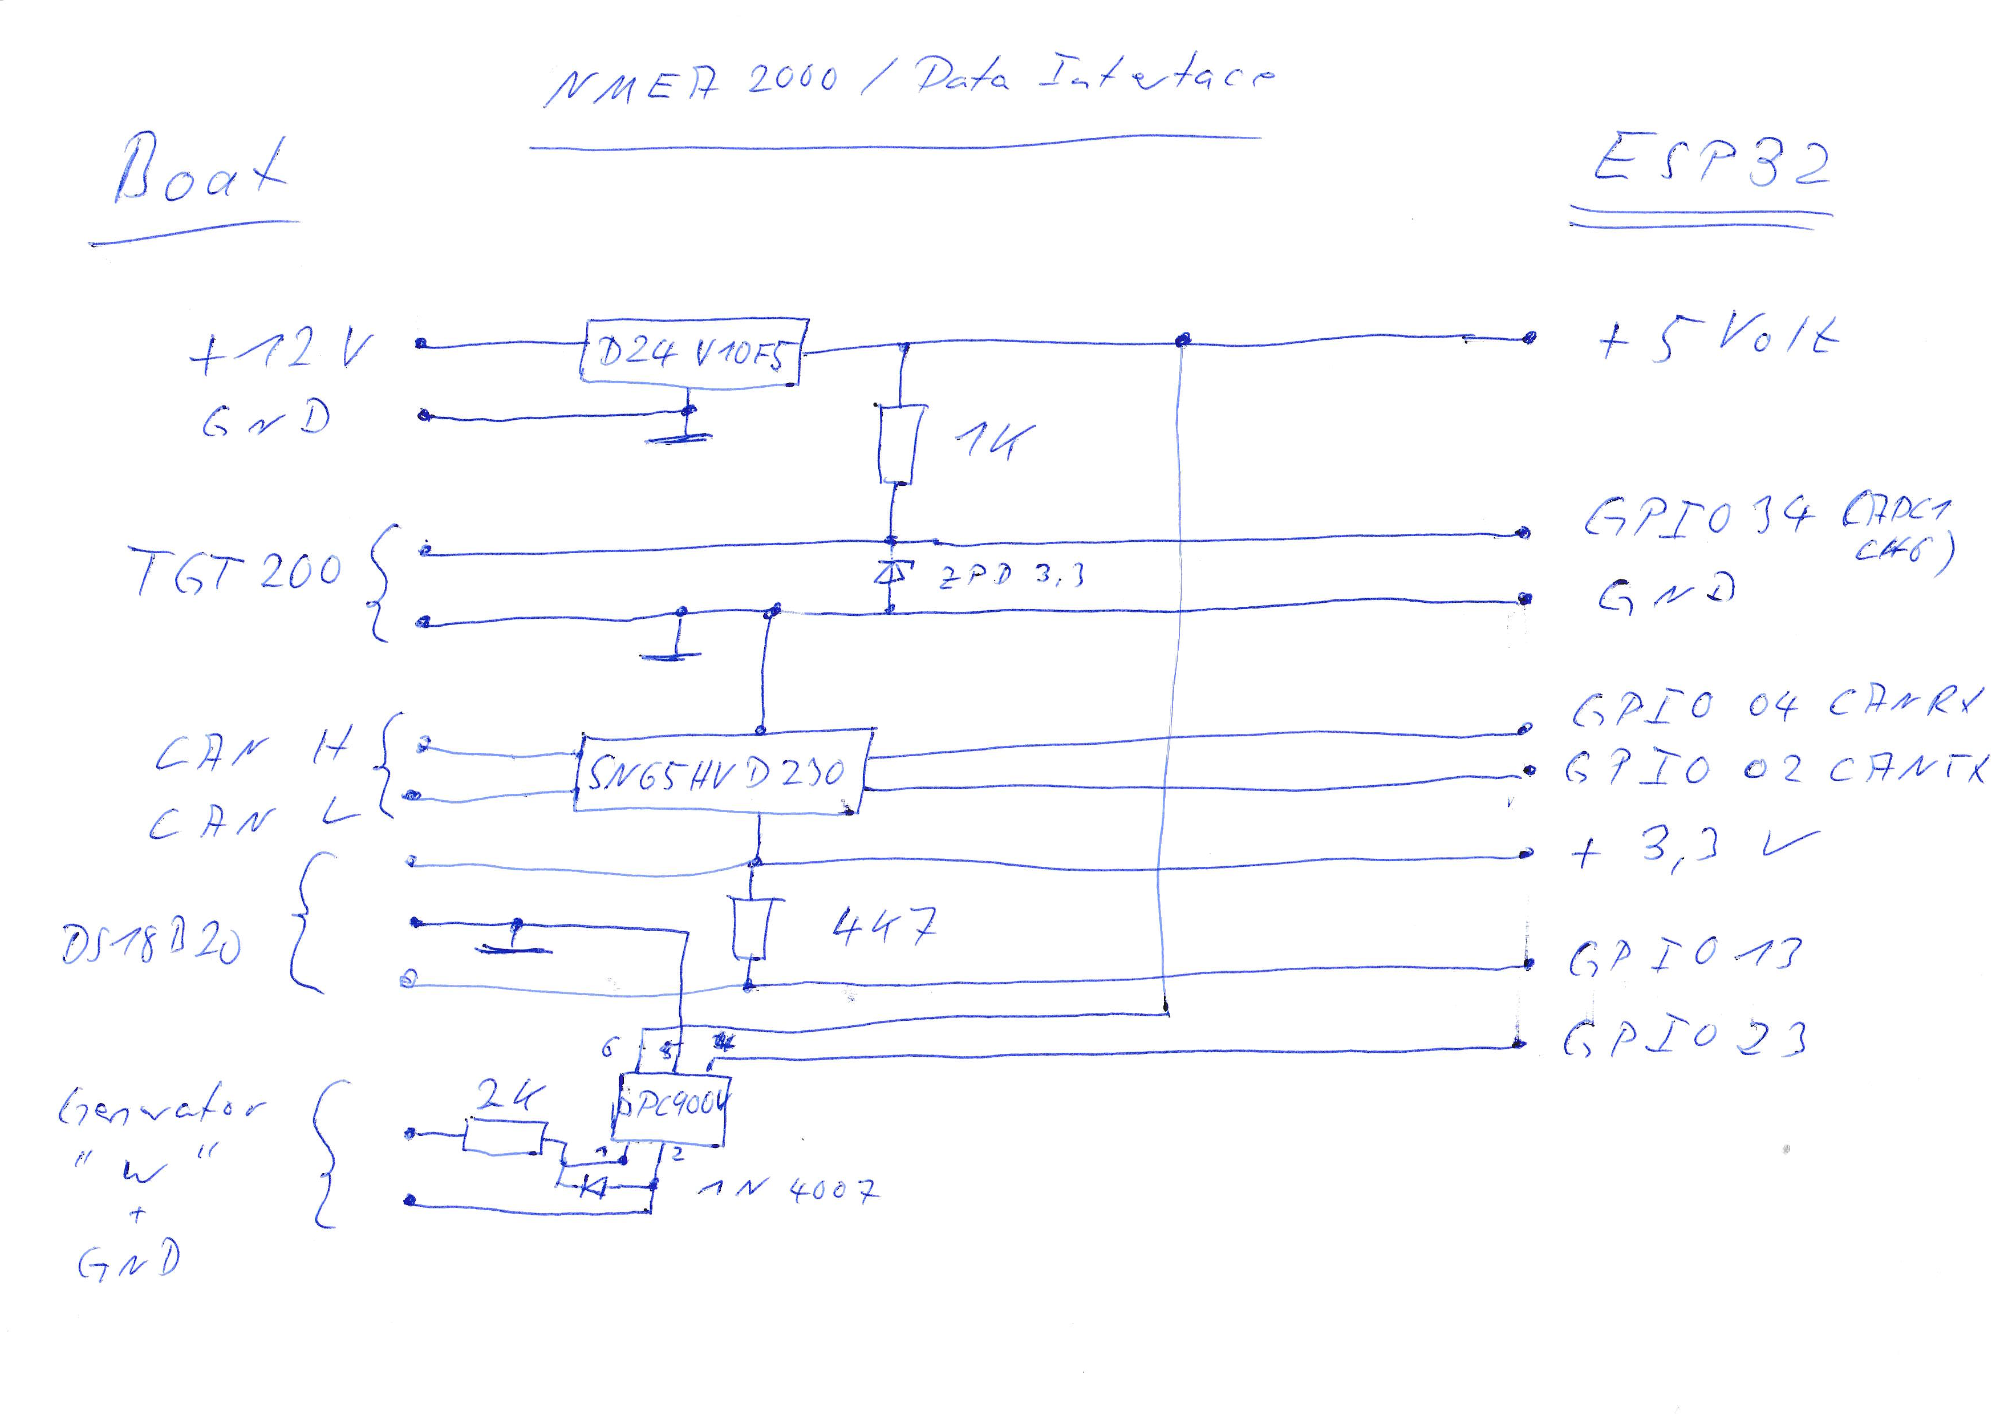 NMEA 2000 / Data Interface
Boat
ESP32
+12V
D24V10F5
+ 5 Volt
GND
1K
TGT 200
GPIO 34 (ADC1
CH6)
ZPD 3,3
GND
CAN H
SN65HVD230
GPIO 04 CANRX
GPIO 02 CANTX
CAN L
+ 3,3 V
DS18B20
4K7
GPIO 13
6 5 4
GPIO 23
Generator
"W"
+
GND
2K
1 2
1N4007